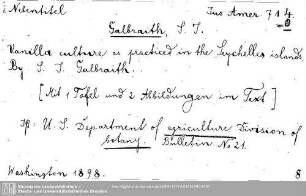 Nebentitel
Jus Amer. 714
Galbraith, S. J.
Vanilla culture as practiced in the Seychelles islands.
By S. J. Galbraith.
[Mit 1 Tafel und 2 Abbildungen im Text]
U. S. Department of agriculture Division of
botany Bulletin No 21.
Washington 1898. 8